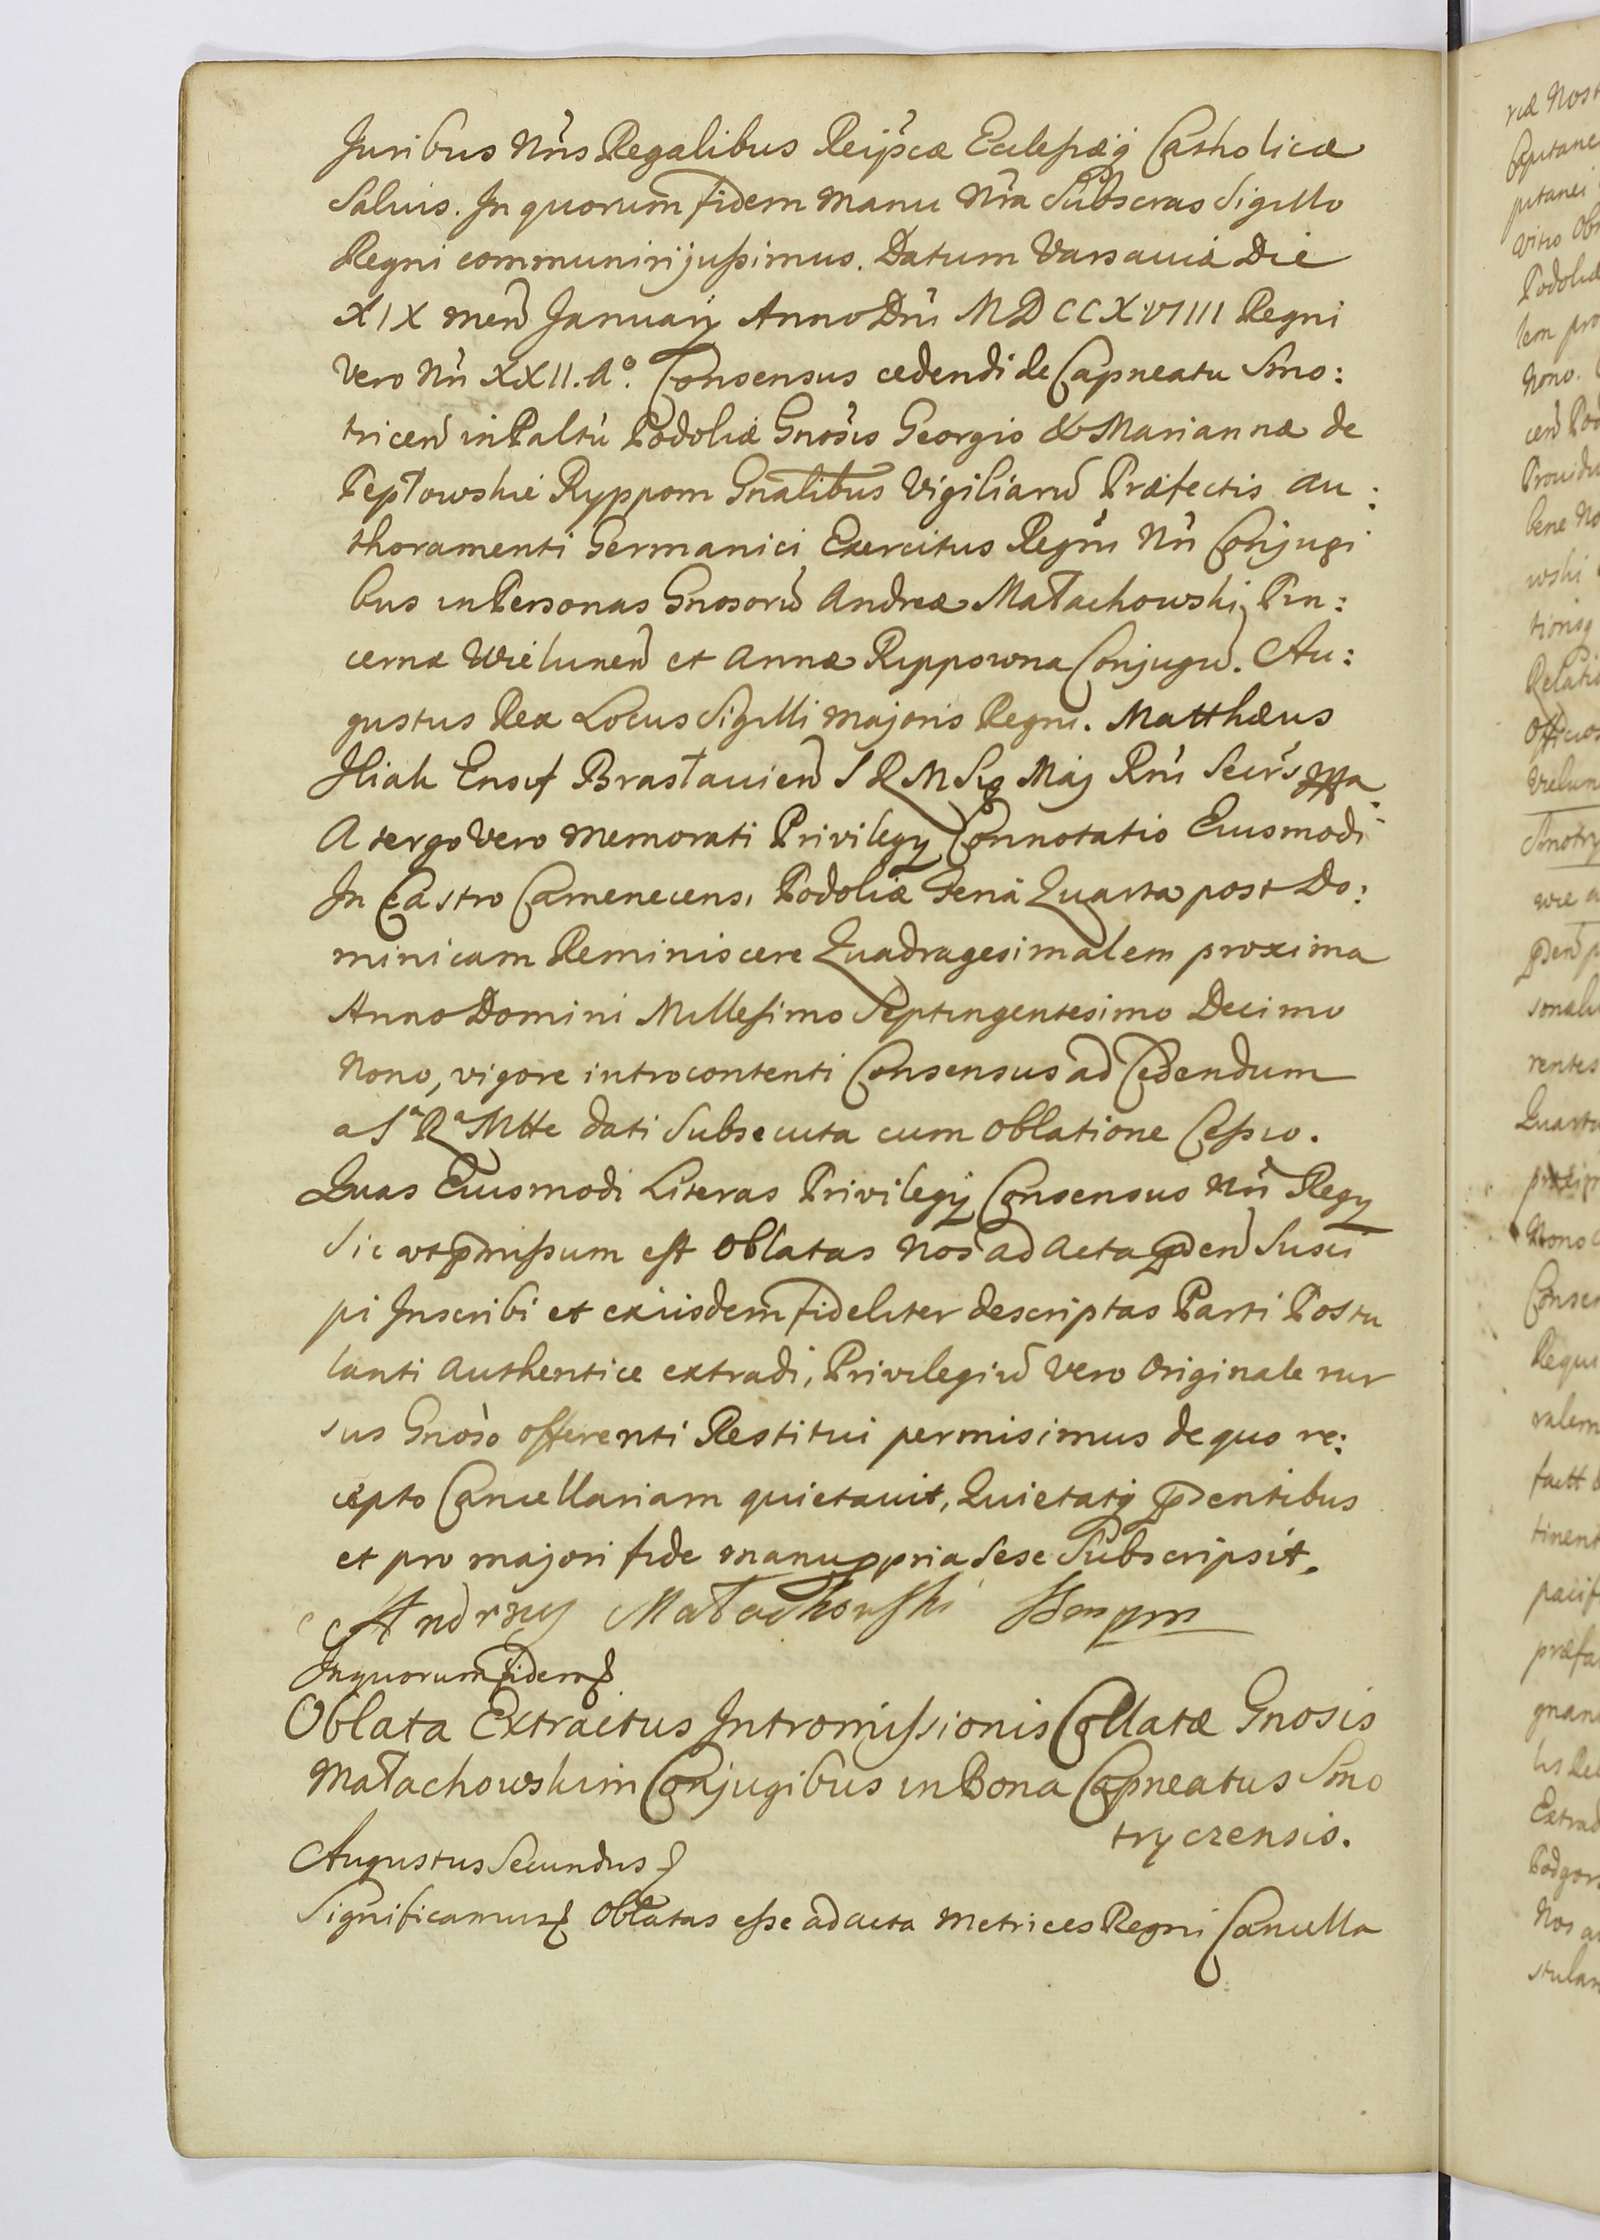 Juribus Nr̃is Regalibus Reipscæ Eclesiæq̃ Catholicæ
Salvis. In quorum fidem manu Nr̃a Subscras Sigillo
Regni communiri jussimus. Datum Varsaviæ Die
XIX Men̄ January Anno Dn̄i MDCCXVIIII Regni
Vero Nr̃i XXII. Aº. Consensus cedendi de Capneatu Smo:
tricen̄ in Paltũ Podoliæ Gnosis Georgio & Mariannæ de
Pepłowskie Ryppom Gnalibus Vigiliarũ Præfectis Au:
thoramenti Germanici Exercitus Regni Nr̃i Conjugi
bus in Personas Gnosorũ Andreæ Małachowski Pin:
cernæ Wielunen̄ et Annæ Rippowna Conjugũ. Au:
gustus Rex Locus Sigilli Majoris Regni. Matthæus
Iliak Ensif Brasłavien̄ S R M Sig Maj Rn̄i Secr̃s mpa
A tergo Vero memorati Privilegy Connotatio Eiusmodi
In Castro Camenecens. Podoliæ Feria Quarta post Do:
minicam Reminiscere Quadragesimalem proxima
Anno Domini Millesimo Septingentesimo Decimo
Nono, vigore introcontenti Consensus ad Cedendum
a Sª Rª Mtte dati Subsecuta cum Oblatione Cessio.
Quas Eiusmodi Literas Privilegij Consensus Nr̃i Regy
Sic ut pmissum est Oblatas Nos ad Acta pden̄ Susci
pi Inscribi et exiisdem fideliter descriptas Parti Postu
lanti Authentice extradi, Privilegiũ Vero Originale rur
sus Gnoso offerenti Restitui permisimus de quo re:
cepto Cancellariam quietavit, Quietatq̃ pdentibus
et pro majori fide manu ppria Sese Subscripsit.
Andrzey Małachowski mpm
In quorum fidem
Oblata Extractus Intromissionis Collatæ Gnosis
Małachowskim Conjugibus in Bona Capneatus Smo
tryczensis.
Augustus Secundus
Significamus Oblatas esse ad acta Metrices Regni Cancella